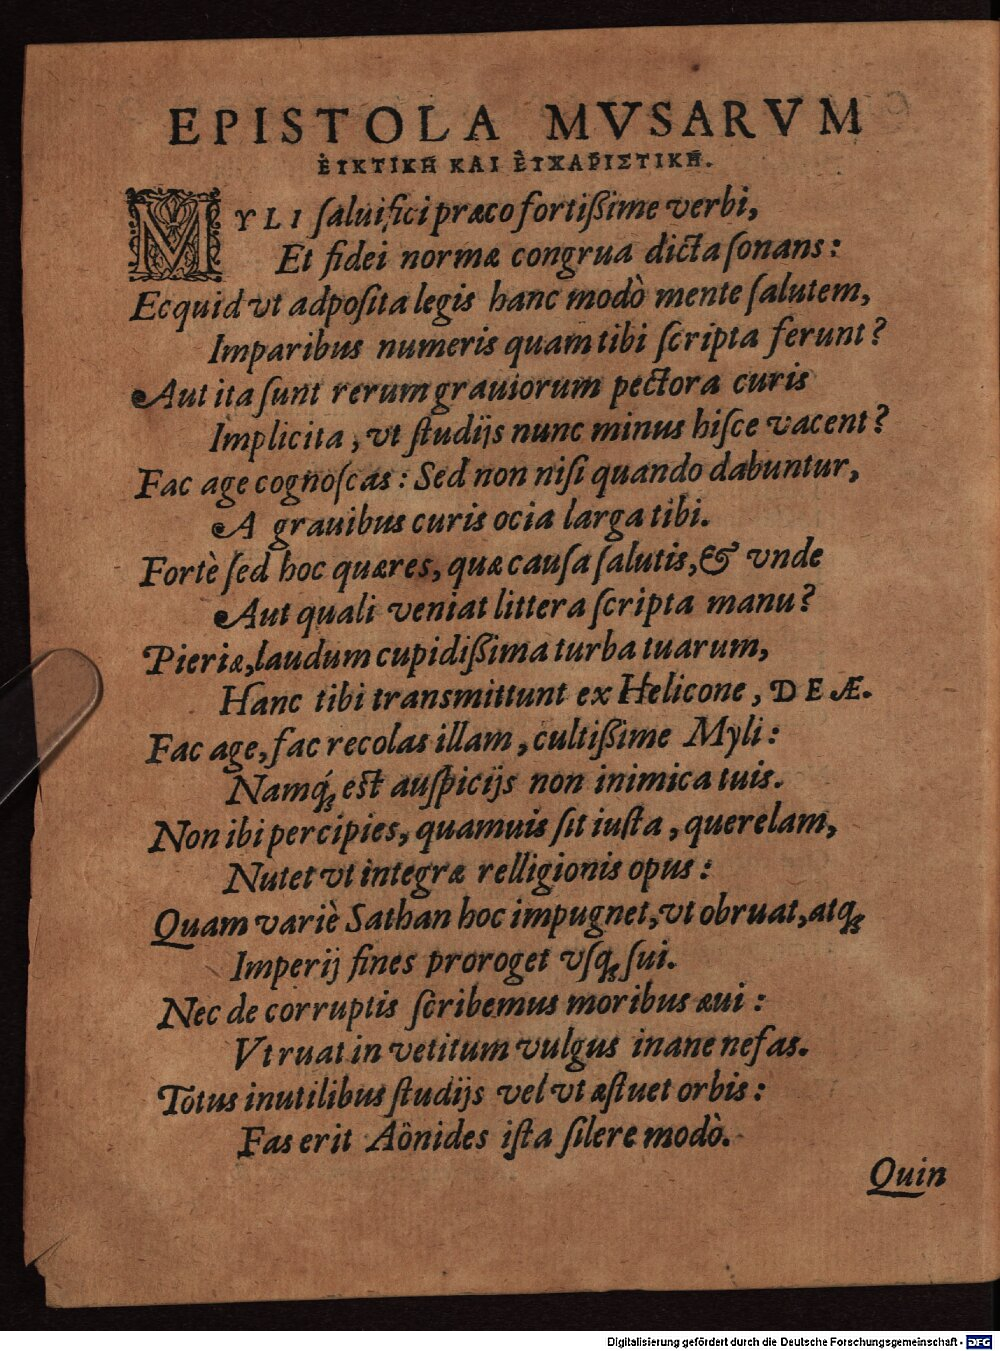 EPISTOLA MVSARVM
ἘΥΚΤΙΚῊ ΚΑΙ ἘΥΧΑΡΙΣΤΙΚΉ.
MYLI ſaluifici præco fortißime verbi,
Et fidei normæ congrua dicta ſonans:
Ecquid vt adpoſita legis hanc modò mente ſalutem,
Imparibus numeris quam tibi ſcripta ferunt?
Aut ita ſunt rerum grauiorum pectora curis
Implicita, vt ſtudijs nunc minus hiſce vacent?
Fac age cognoſcas: Sed non niſi quando dabuntur,
A grauibus curis ocia larga tibi.
Fortè ſed hoc quæres, quæ cauſa ſalutis, & vnde
Aut quali veniat littera ſcripta manu?
Pieriæ, laudum cupidißima turba tuarum,
Hanc tibi transmittunt ex Helicone, DEÆ.
Fac age, fac recolas illam, cultißime Myli:
Namq́ꝫ est auſpicijs non inimica tuis.
Non ibi percipies, quamuis ſit iuſta, querelam,
Nutet vt integræ relligionis opus:
Quam variè Sathan hoc impugnet, vt obruat, atqꝫ
Imperij fines proroget vſqꝫ ſui.
Nec de corruptis ſcribemus moribus æui:
Vt ruat in vetitum vulgus inane nefas.
Totus inutilibus ſtudijs vel vt æſtuet orbis:
Fas erit Aönides iſta ſilere modò.
Quin
Digitalisierung gefördert durch die Deutsche Forschungsgemeinschaft - DFG